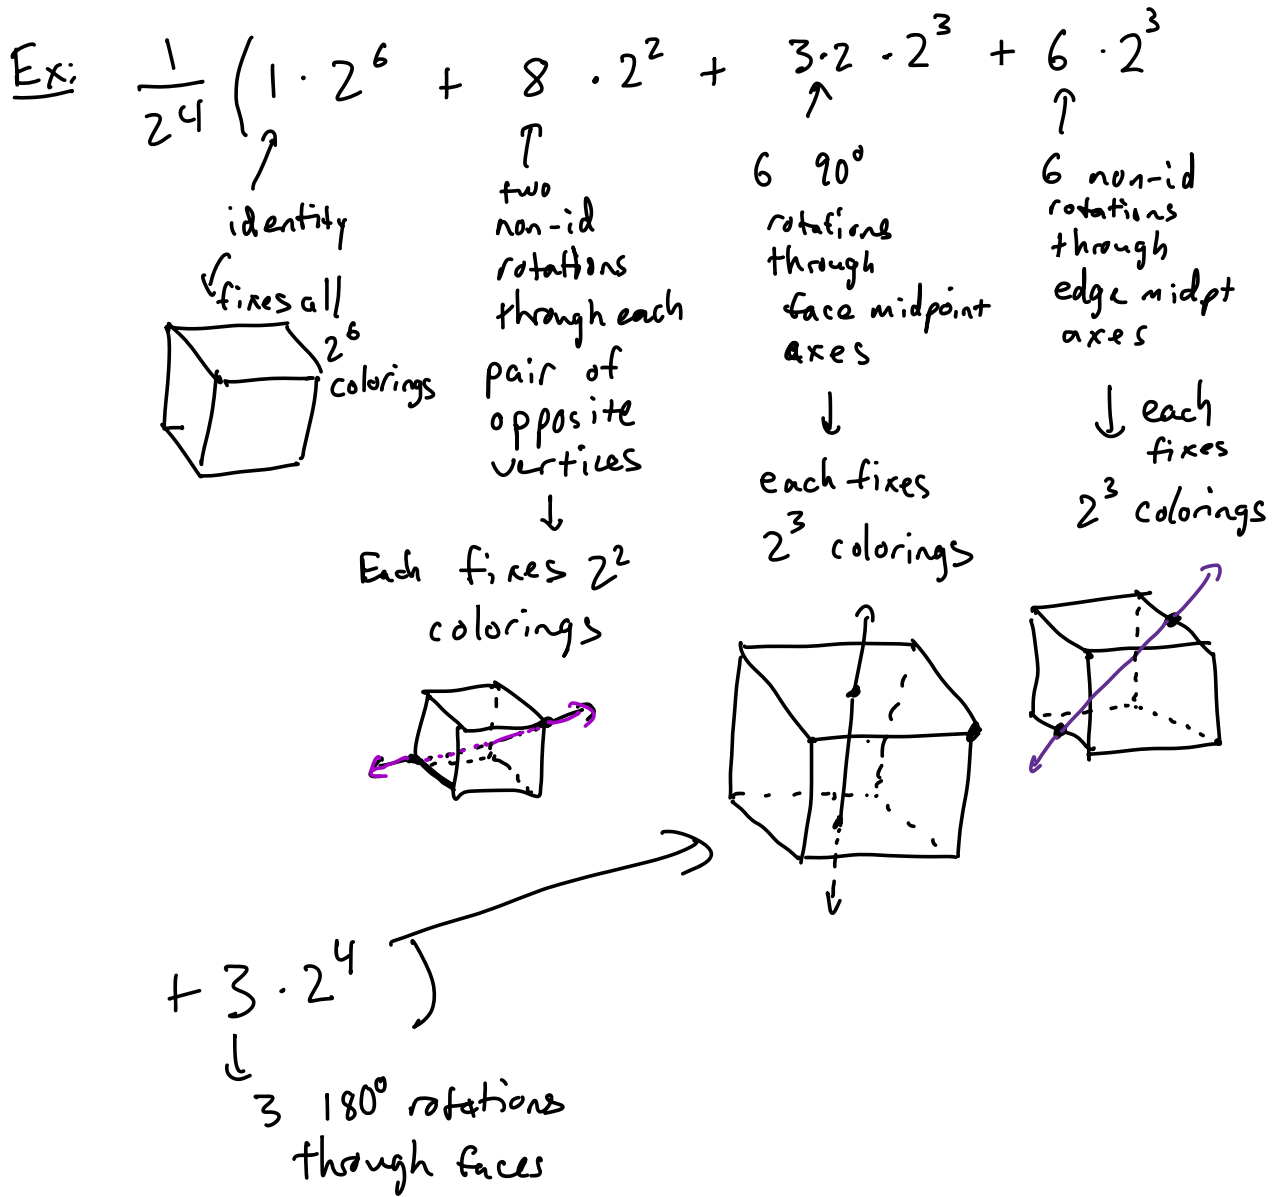 Ex: 1/24 (1 · 2^6 + 8 · 2^2 + 3·2 · 2^3 + 6 · 2^3
identity
fixes all
2^6
colorings
two
non-id
rotations
through each
pair of
opposite
vertices
Each fixes 2^2
colorings
6 90°
rotations
through
face midpoint
axes
each fixes
2^3 colorings
6 non-id
rotations
through
edge midpt
axes
each
fixes
2^3 colorings
+ 3 · 2^4 )
3 180° rotations
through faces